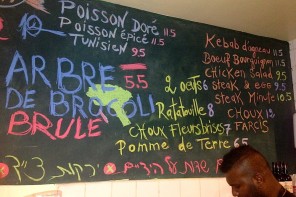 POISSON Doré 11.5
POISSON Épicé 11.5
TUNISIEN 9.5
ARBRE 5.5
DE BROCOLI
BRULE
Kebab d'agneau 11.5
Boeuf Bourguignon 11.5
Chicken Salad 9.5
Steak & egg 11.5
Steak Minute 10.5
2 oeufs 6
Ratatouille 8
CHOUX 12
CHOUX Fleurs brises 7
FARCIS
Pomme de Terre 6.5
ירקות צ'יף